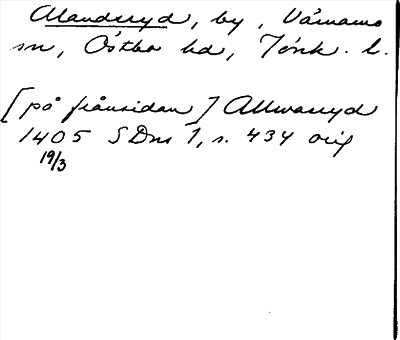 Alandsryd, by, Värnamo
sn, Östbo hd, Jönk. l.
[på frånsidan] Allwarryd
1405 SDns 1, s. 434 orig
19/3